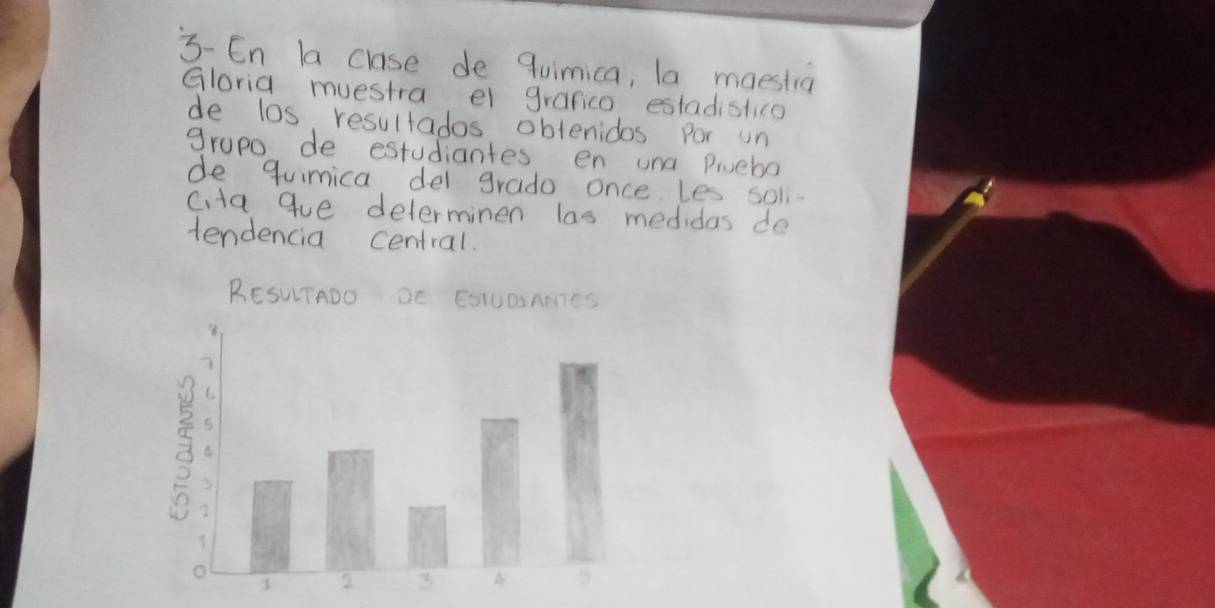 3- En la clase de química, la maestra
Gloria muestra el grafico estadistico
de los resultados obtenidos por un
grupo de estudiantes en una Prueba
de química del grado once. Les soli-
cita que determinen las medidas de
tendencia central.
RESULTADO DE ESTUDIANTES
ESTUDIANTES
8
7
6
5
4
3
2
1
0
1 2 3 4 5